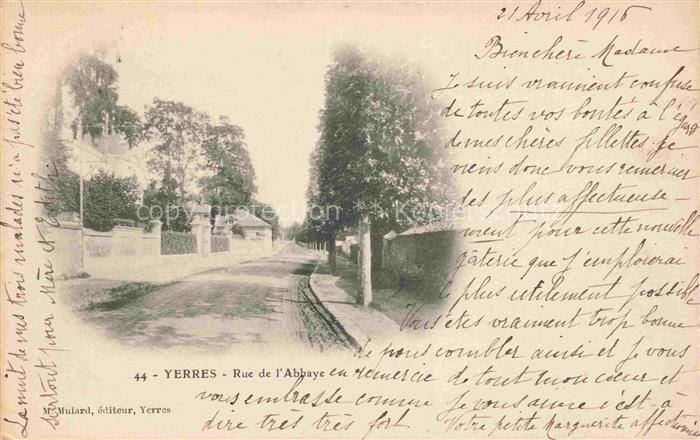 21 Avril 1916
Bien chère Madame
Je suis vraiment confuse
de toutes vos bontés à l'égard
de mes chères fillettes je
viens donc vous remercier
des plus affectueuse-
ment pour cette nouvelle
gaterie que j'emploierai
le plus utilement possible
Vous êtes vraiment trop bonne
de nous combler ainsi et je vous
en remercie de tout mon cœur et
vous embrasse comme je vous aime c'est à
dire très très fort. Votre petite Marguerite affectionnée
La nuit de mes trois malades n'a pas été bien bonne
surtout pour Mère et Edith.
44 - YERRES - Rue de l'Abbaye
M. Mulard, éditeur, Yerres
copyright protection Kepers